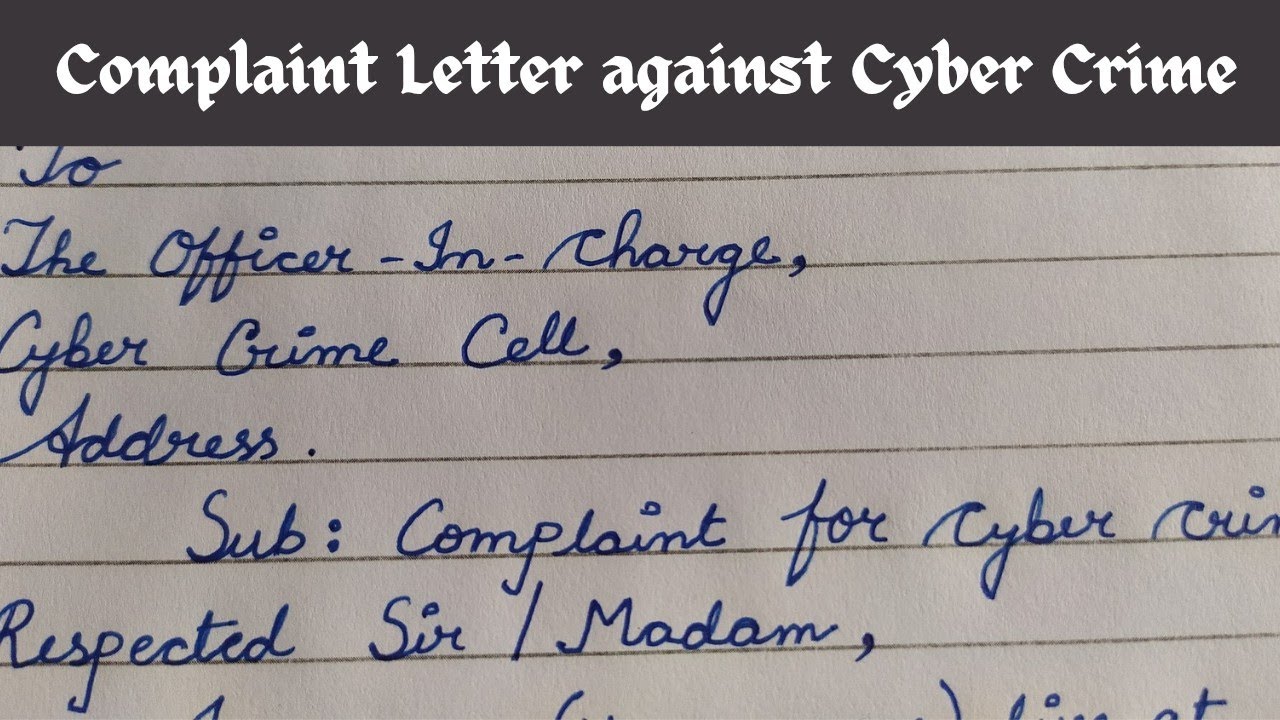 Complaint Letter against Cyber Crime
To
The Officer-In-Charge,
Cyber Crime Cell,
Address.
Sub: Complaint for Cyber
Respected Sir / Madam,